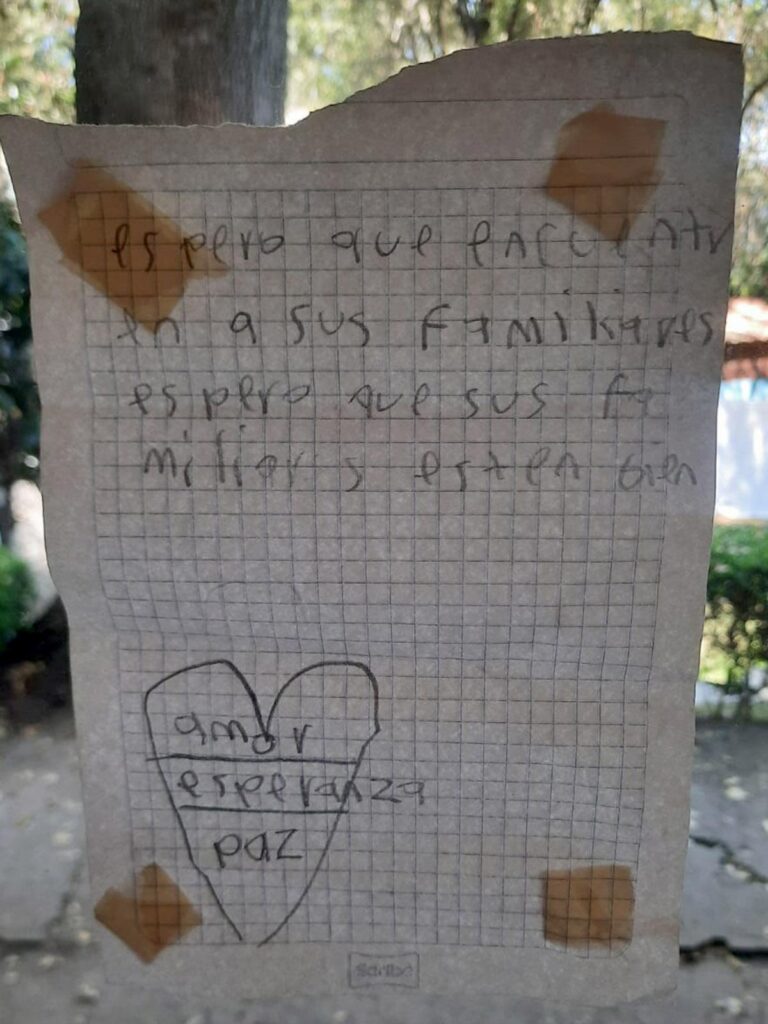 espero que encuentr
en a sus familiares
espero que sus fa
miliars esten bien
amor
esperanza
paz
Scribe